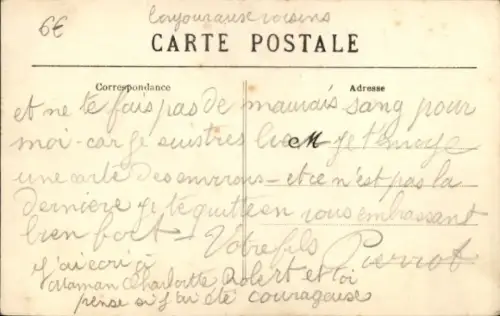 6€
bonjour aux voisins
CARTE POSTALE
Correspondance
Adresse
et ne te fais pas de mauvais sang pour
moi - car je suis tres bien - je t'envoye
une carte des environs - et ce n'est pas la
derniere je te quitte en vous embrassant
bien fort - Votre fils Pierrot
j'ai écri à
maman Charlotte Robert et toi
pense si j'ai été courageuse